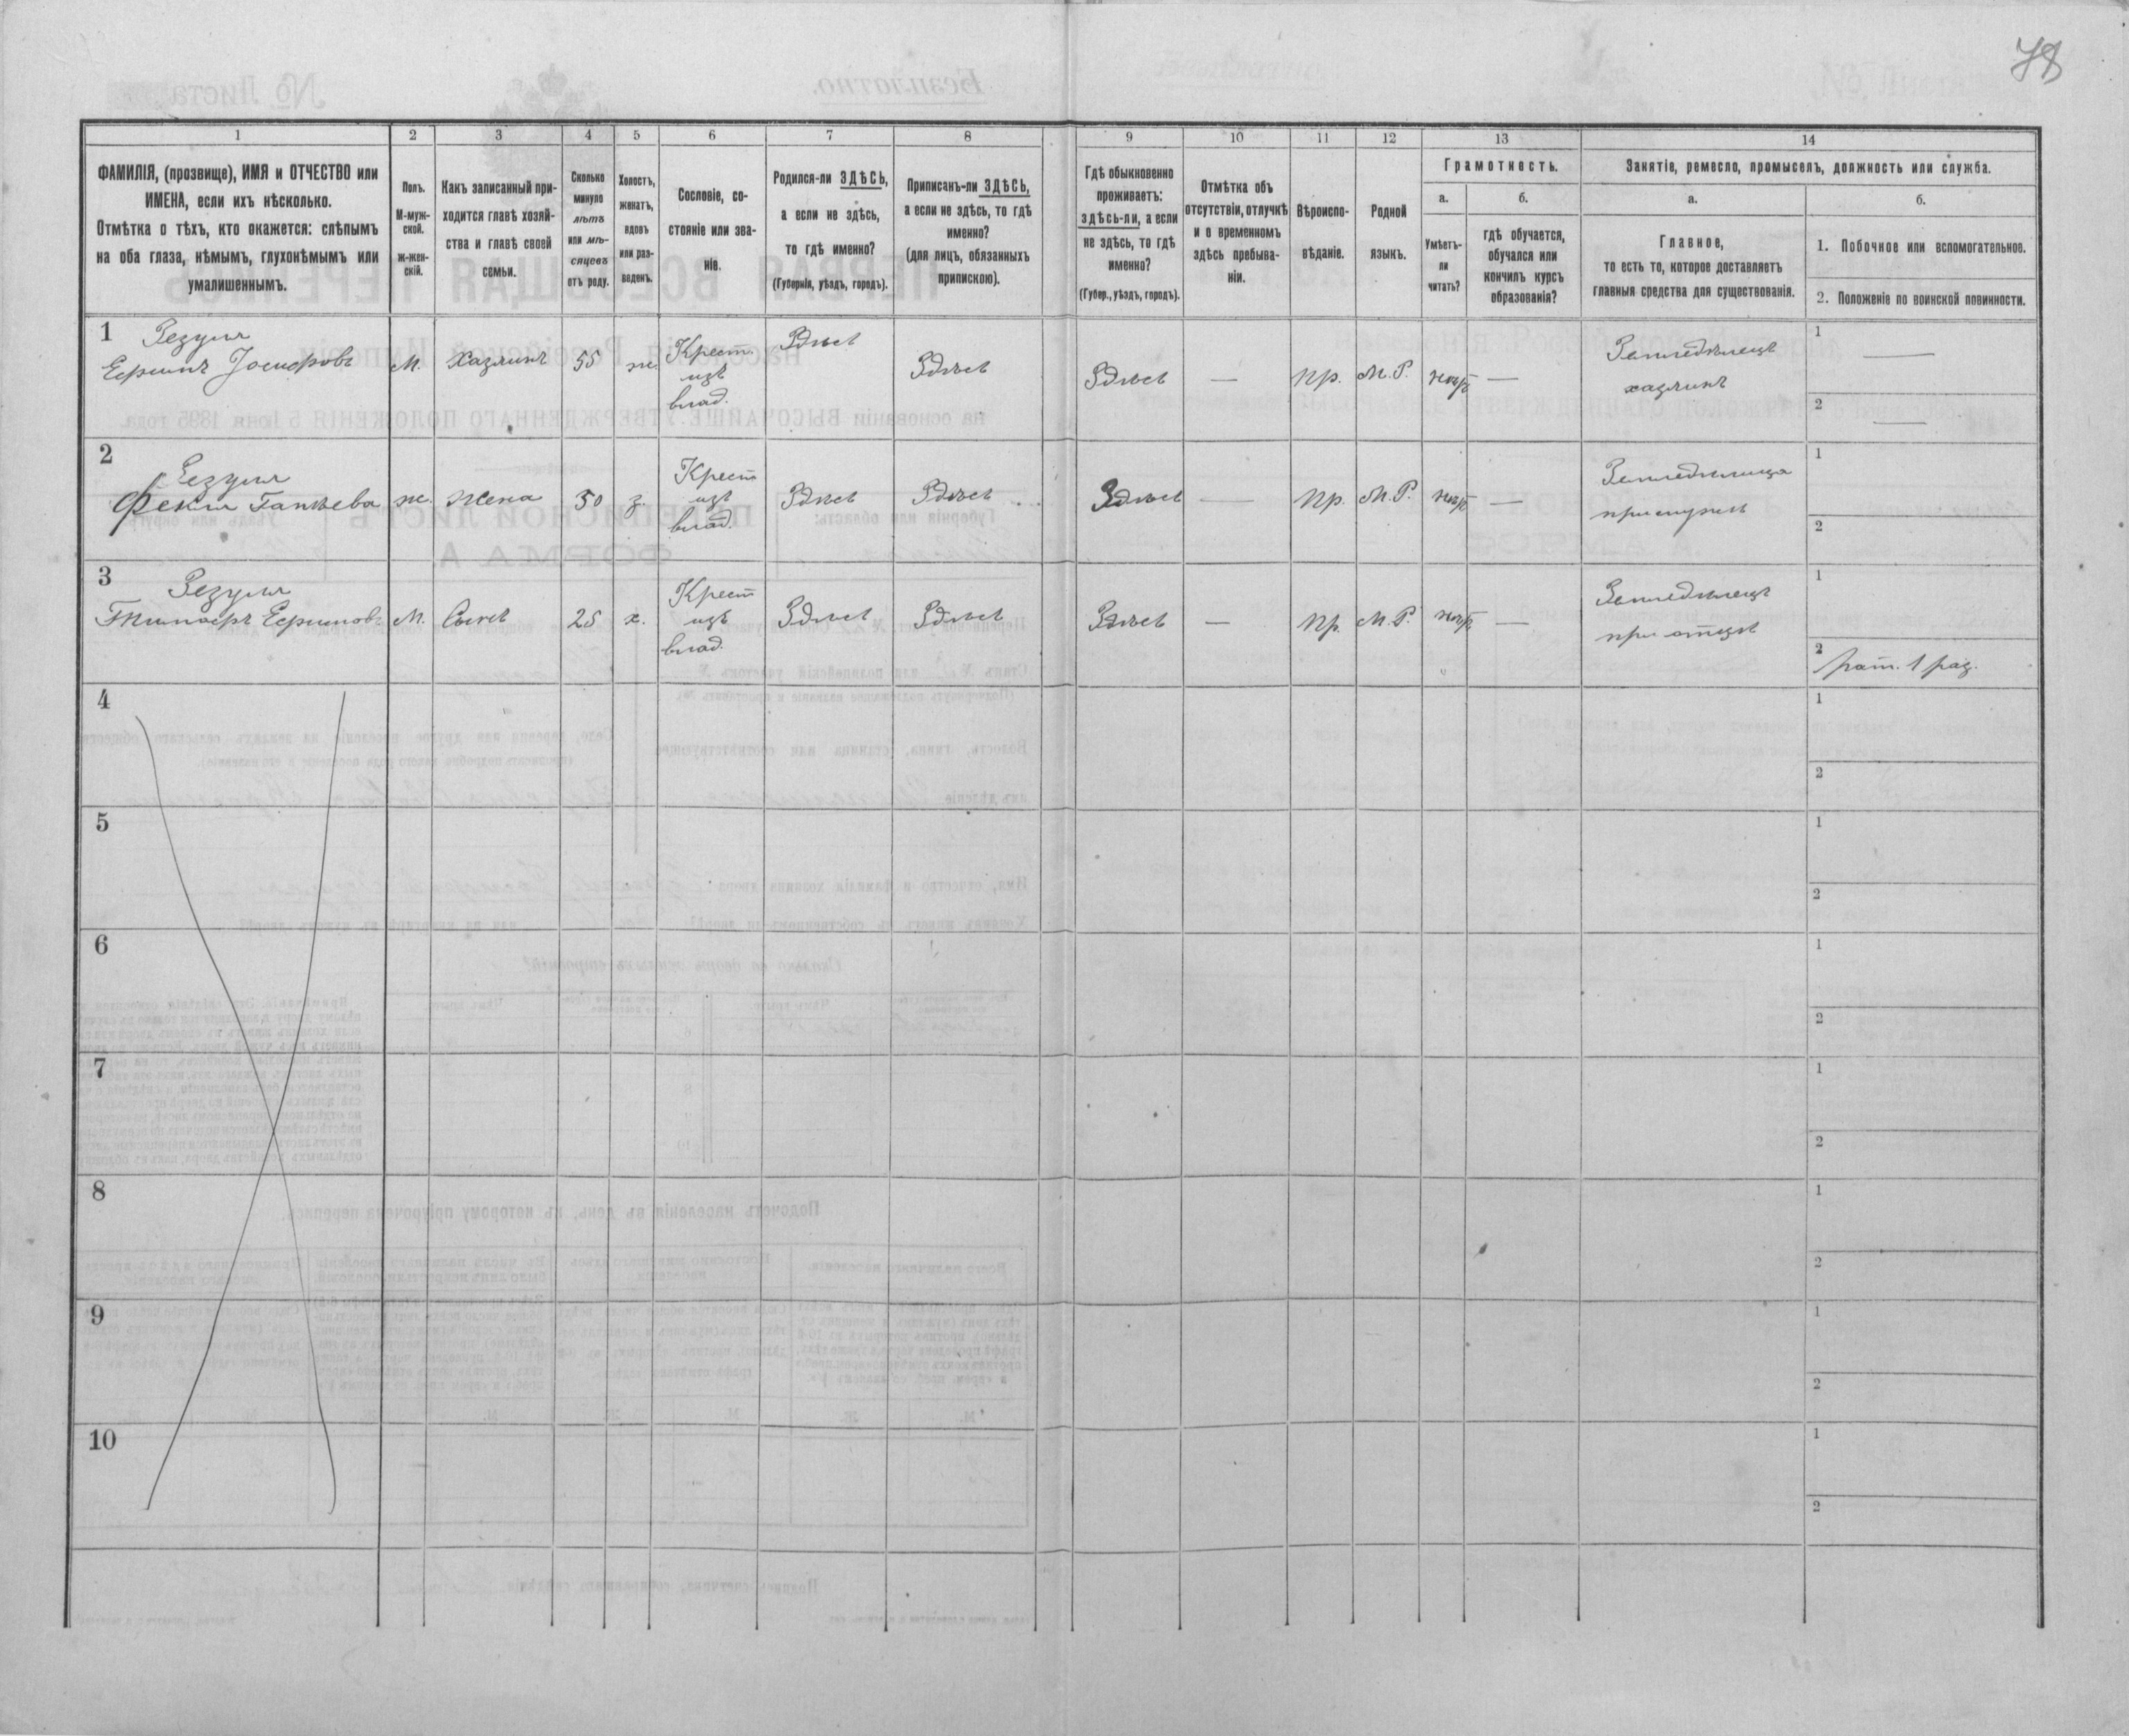 78
1
2
3
4
5
6
7
8
9
10
11
12
13
14
ФАМИЛІЯ, (прозвище), ИМЯ и ОТЧЕСТВО или
ИМЕНА, если ихъ нѣсколько.
Отмѣтка о тѣхъ, кто окажется: слѣпымъ
на оба глаза, нѣмымъ, глухонѣмымъ или
умалишеннымъ.
Полъ.
М-муж-
ской.
Ж-жен-
скій.
Какъ записанный при-
ходится главѣ хозяй-
ства и главѣ своей
семьи.
Сколько
минуло
лѣтъ
или мѣ-
сяцевъ
отъ роду.
Холостъ,
женатъ,
вдовъ
или раз-
веденъ.
Сословіе, со-
стояніе или зва-
ніе.
Родился-ли ЗДѢСЬ,
а если не здѣсь,
то гдѣ именно?
(Губернія, уѣздъ, городъ).
Приписанъ-ли ЗДѢСЬ,
а если не здѣсь, то гдѣ
именно?
(для лицъ, обязанныхъ
припискою).
Гдѣ обыкновенно
проживаетъ:
здѣсь-ли, а если
не здѣсь, то гдѣ
именно?
(Губер., уѣздъ, городъ).
Отмѣтка объ
отсутствіи, отлучкѣ
и о временномъ
здѣсь пребыва-
ніи.
Вѣроиспо-
вѣданіе.
Родной
языкъ.
Грамотность.
а.
б.
Умѣетъ-
ли
читать?
гдѣ обучается,
обучался или
кончилъ курсъ
образованія?
Занятіе, ремесло, промыселъ, должность или служба.
а.
б.
Главное,
то есть то, которое доставляетъ
главныя средства для существованія.
1. Побочное или вспомогательное.
2. Положеніе по воинской повинности.
1
Зезуля
Ефимъ Іосифовъ
М.
Хазяинъ
55
ж.
Крест.
изъ
влад.
Здѣсь
Здѣсь
Здѣсь
—
Пр.
М. Р.
негр.
—
Земледѣлецъ
хазяинъ
1 —
2 —
2
Зезуля
Фекла
ж.
Жена
50
з.
Крест
изъ
влад.
Здѣсь
Здѣсь
Здѣсь
—
Пр.
М. Р.
негр.
—
Земледѣлица
при мужѣ
1
2
3
Зезуля
Ефимовъ
М.
Сынъ
25
х.
Крест
изъ
влад.
Здѣсь
Здѣсь
Здѣсь
—
Пр.
М. Р.
негр.
—
Земледѣлецъ
при отцѣ
1
2 рат. 1 раз.
4
1
2
5
1
2
6
1
2
7
1
2
8
1
2
9
1
2
10
1
2